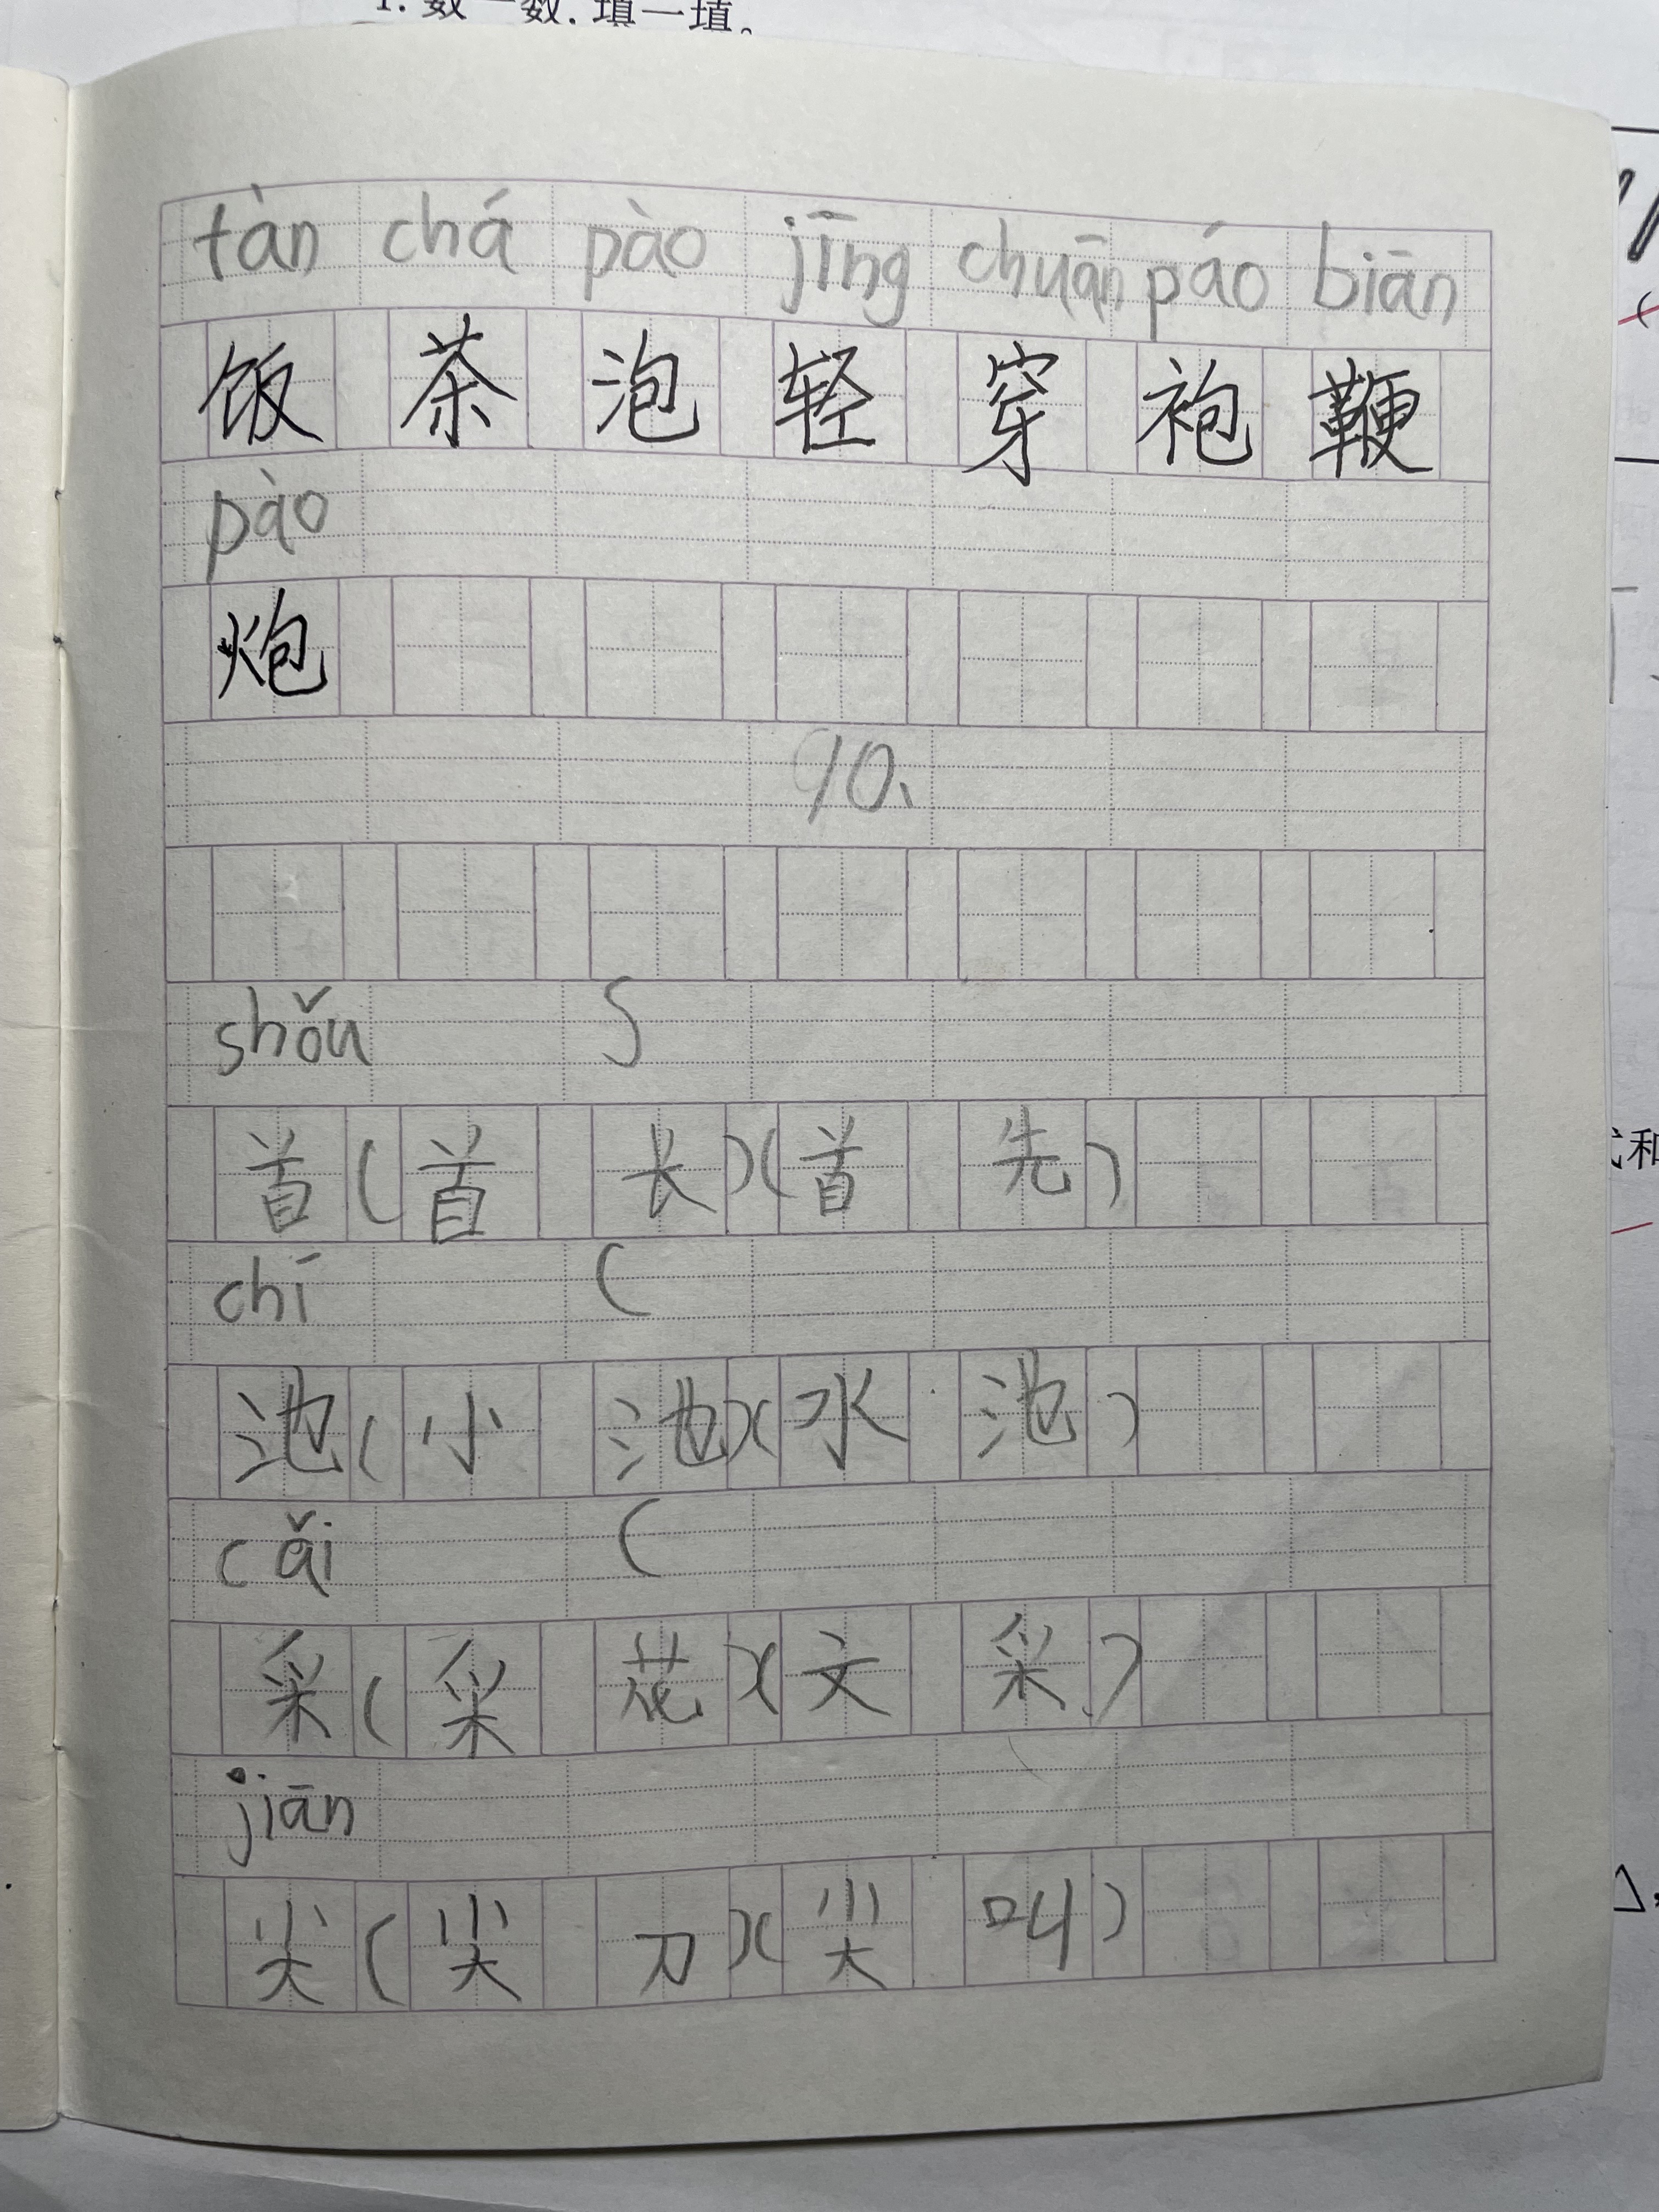 1. 数一数, 填一填。
tàn chá pào jīng chuān páo biān
饭 茶 泡 轻 穿 袍 鞭
pào
炮
10、
shǒu
首(首长)(首先)
chí
池(小池)(水池)
cǎi
采(采花)(文采)
jiān
尖(尖刀)(尖叫)
式和